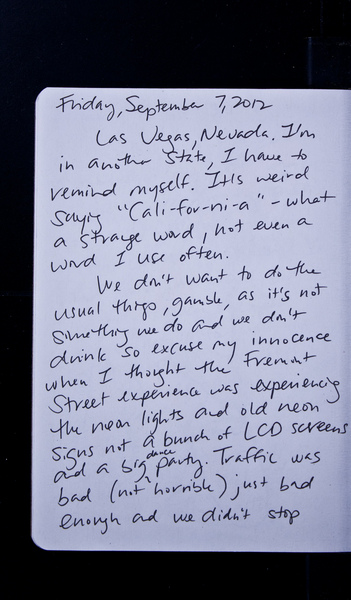 Friday, September 7, 2012
Las Vegas, Nevada. I'm
in another state, I have to
remind myself. It's weird
saying "Cali-for-ni-a" - what
a strange word, not even a
word I use often.
We don't want to do the
usual things, gamble, as it's not
something we do and we don't
drink so excuse my innocence
when I thought the Fremont
Street experience was experiencing
the neon lights and old neon
signs not a bunch of LCD screens
and a big dance party. Traffic was
bad (not horrible) just bad
enough and we didn't stop